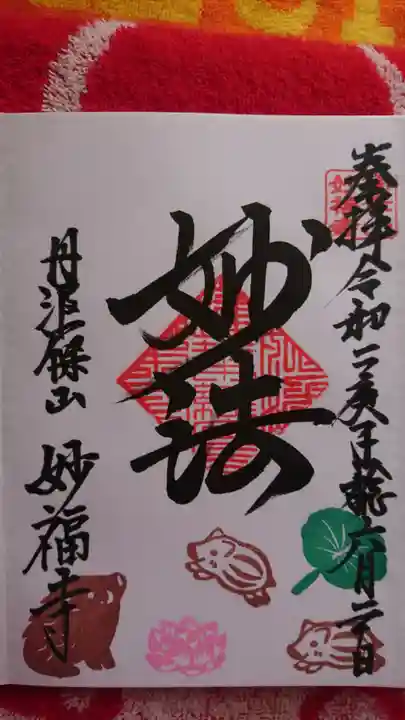 奉拝 令和二庚子龍六月二日
妙法
丹波篠山 妙福寺